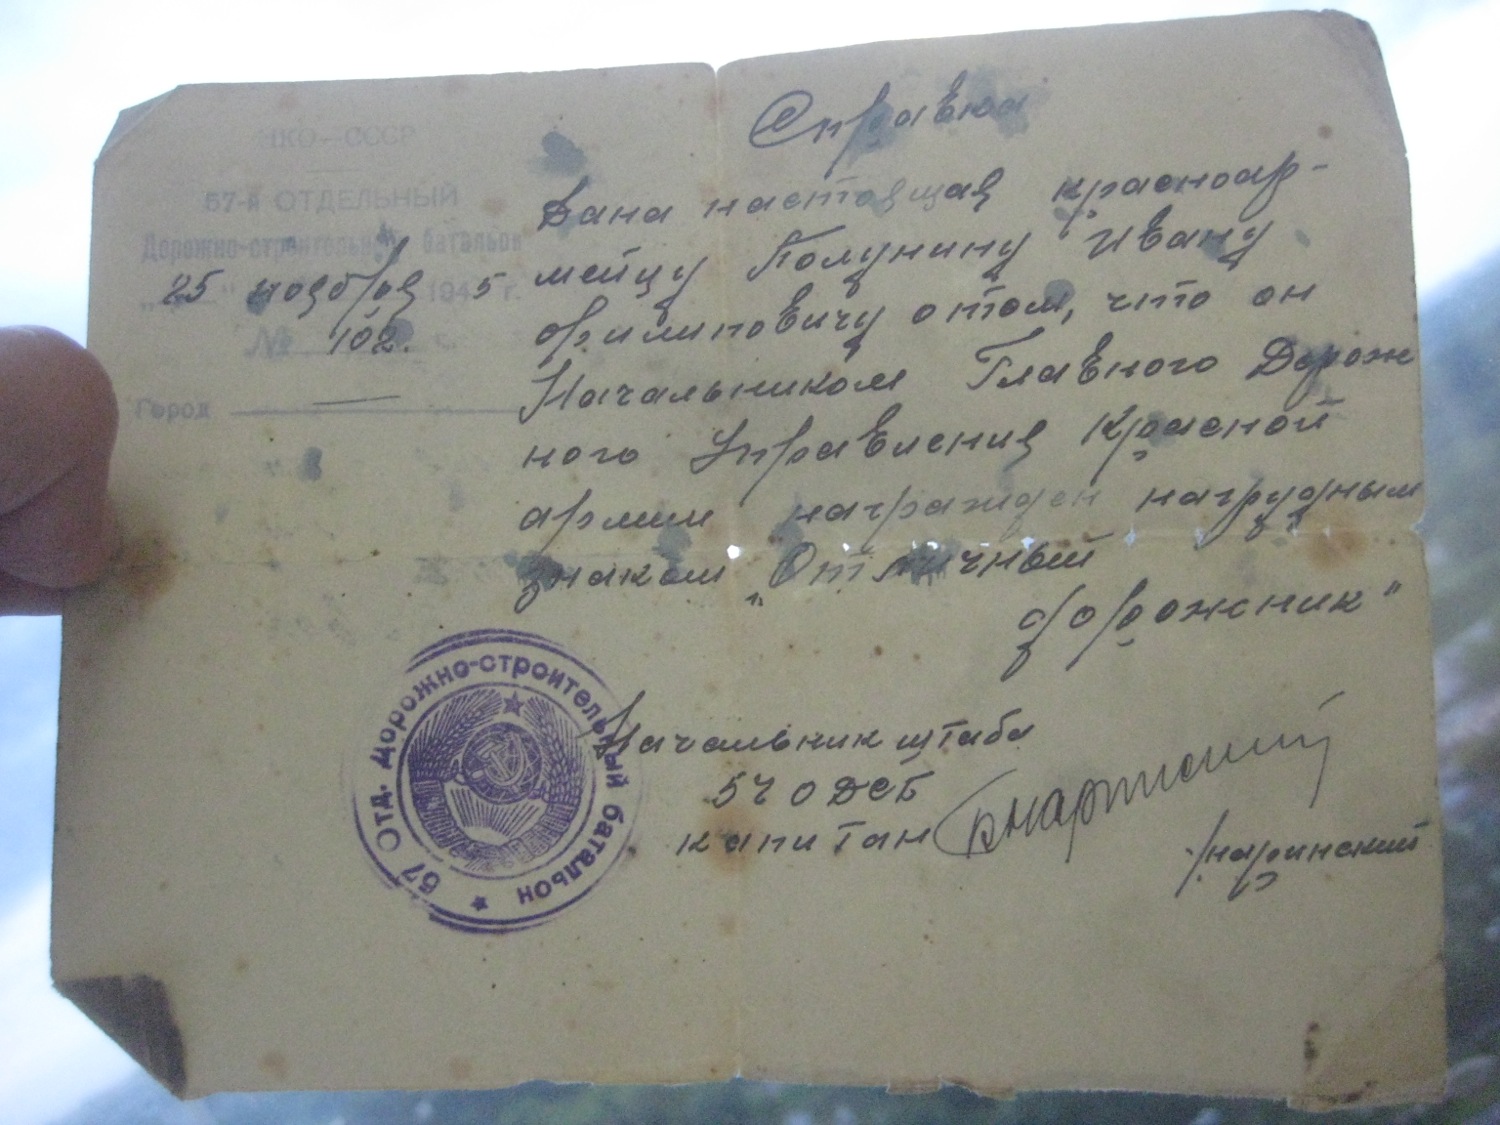 НКО — СССР
57-й ОТДЕЛЬНЫЙ
Дорожно-строительный батальон
„25" ноября 1945 г.
№ 102.
Город
Справка
Дана настоящая красноар-
мейцу Полунину Ивану
Филиповичу о том, что он
Начальником Главного Дорож
ного Управления Красной
армии награжден нагрудным
знаком „Отличный
дорожник"
Начальник штаба
57 ОДСБ
капитан
/наринский
57 Отд. Дорожно-строительный батальон